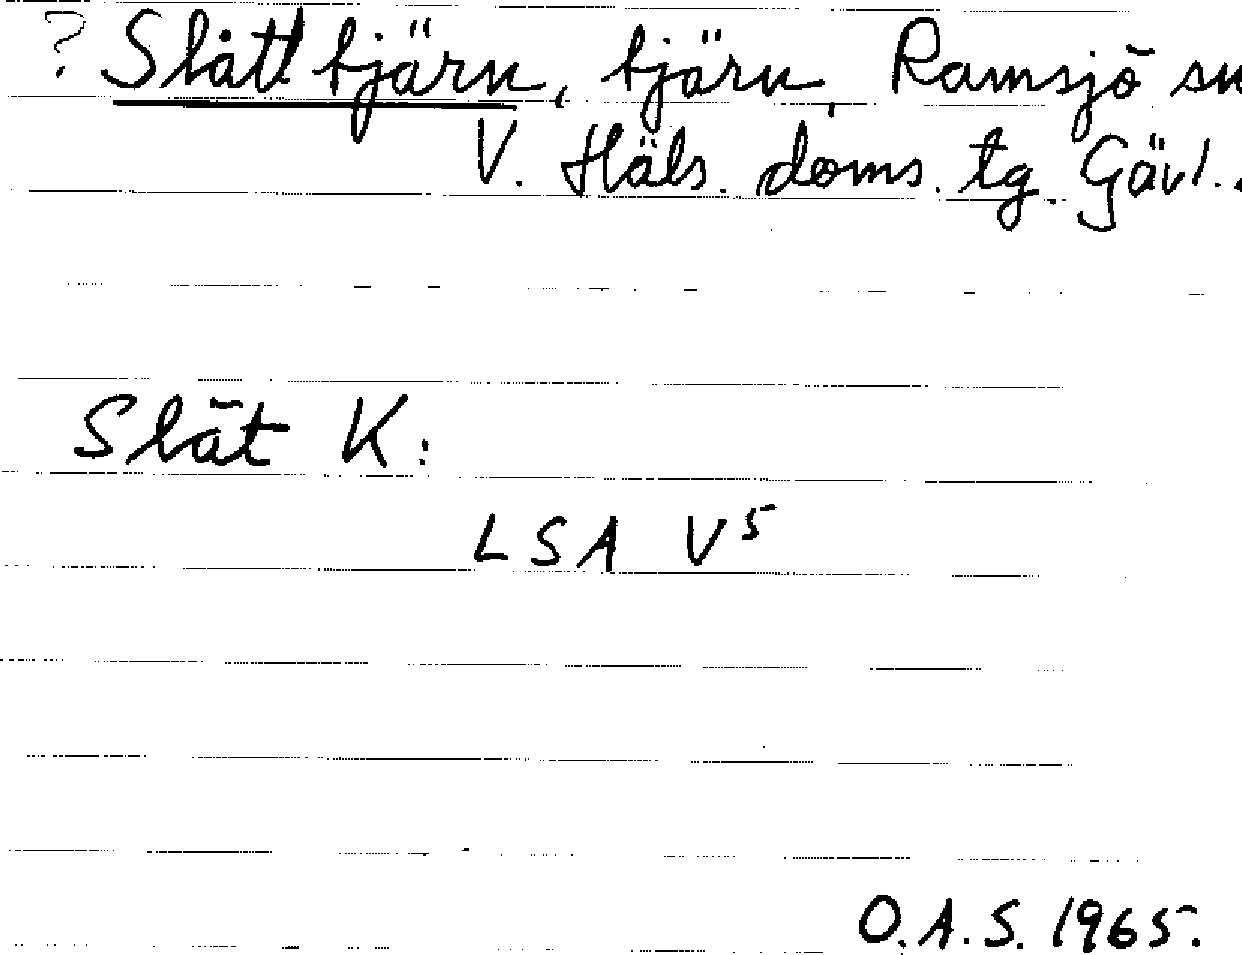 ? Slåttjärn, tjärn, Ramsjö sn
V. Häls. doms. tg. Gävl.
Slät K:
LSA V5
O.A.S. 1965.